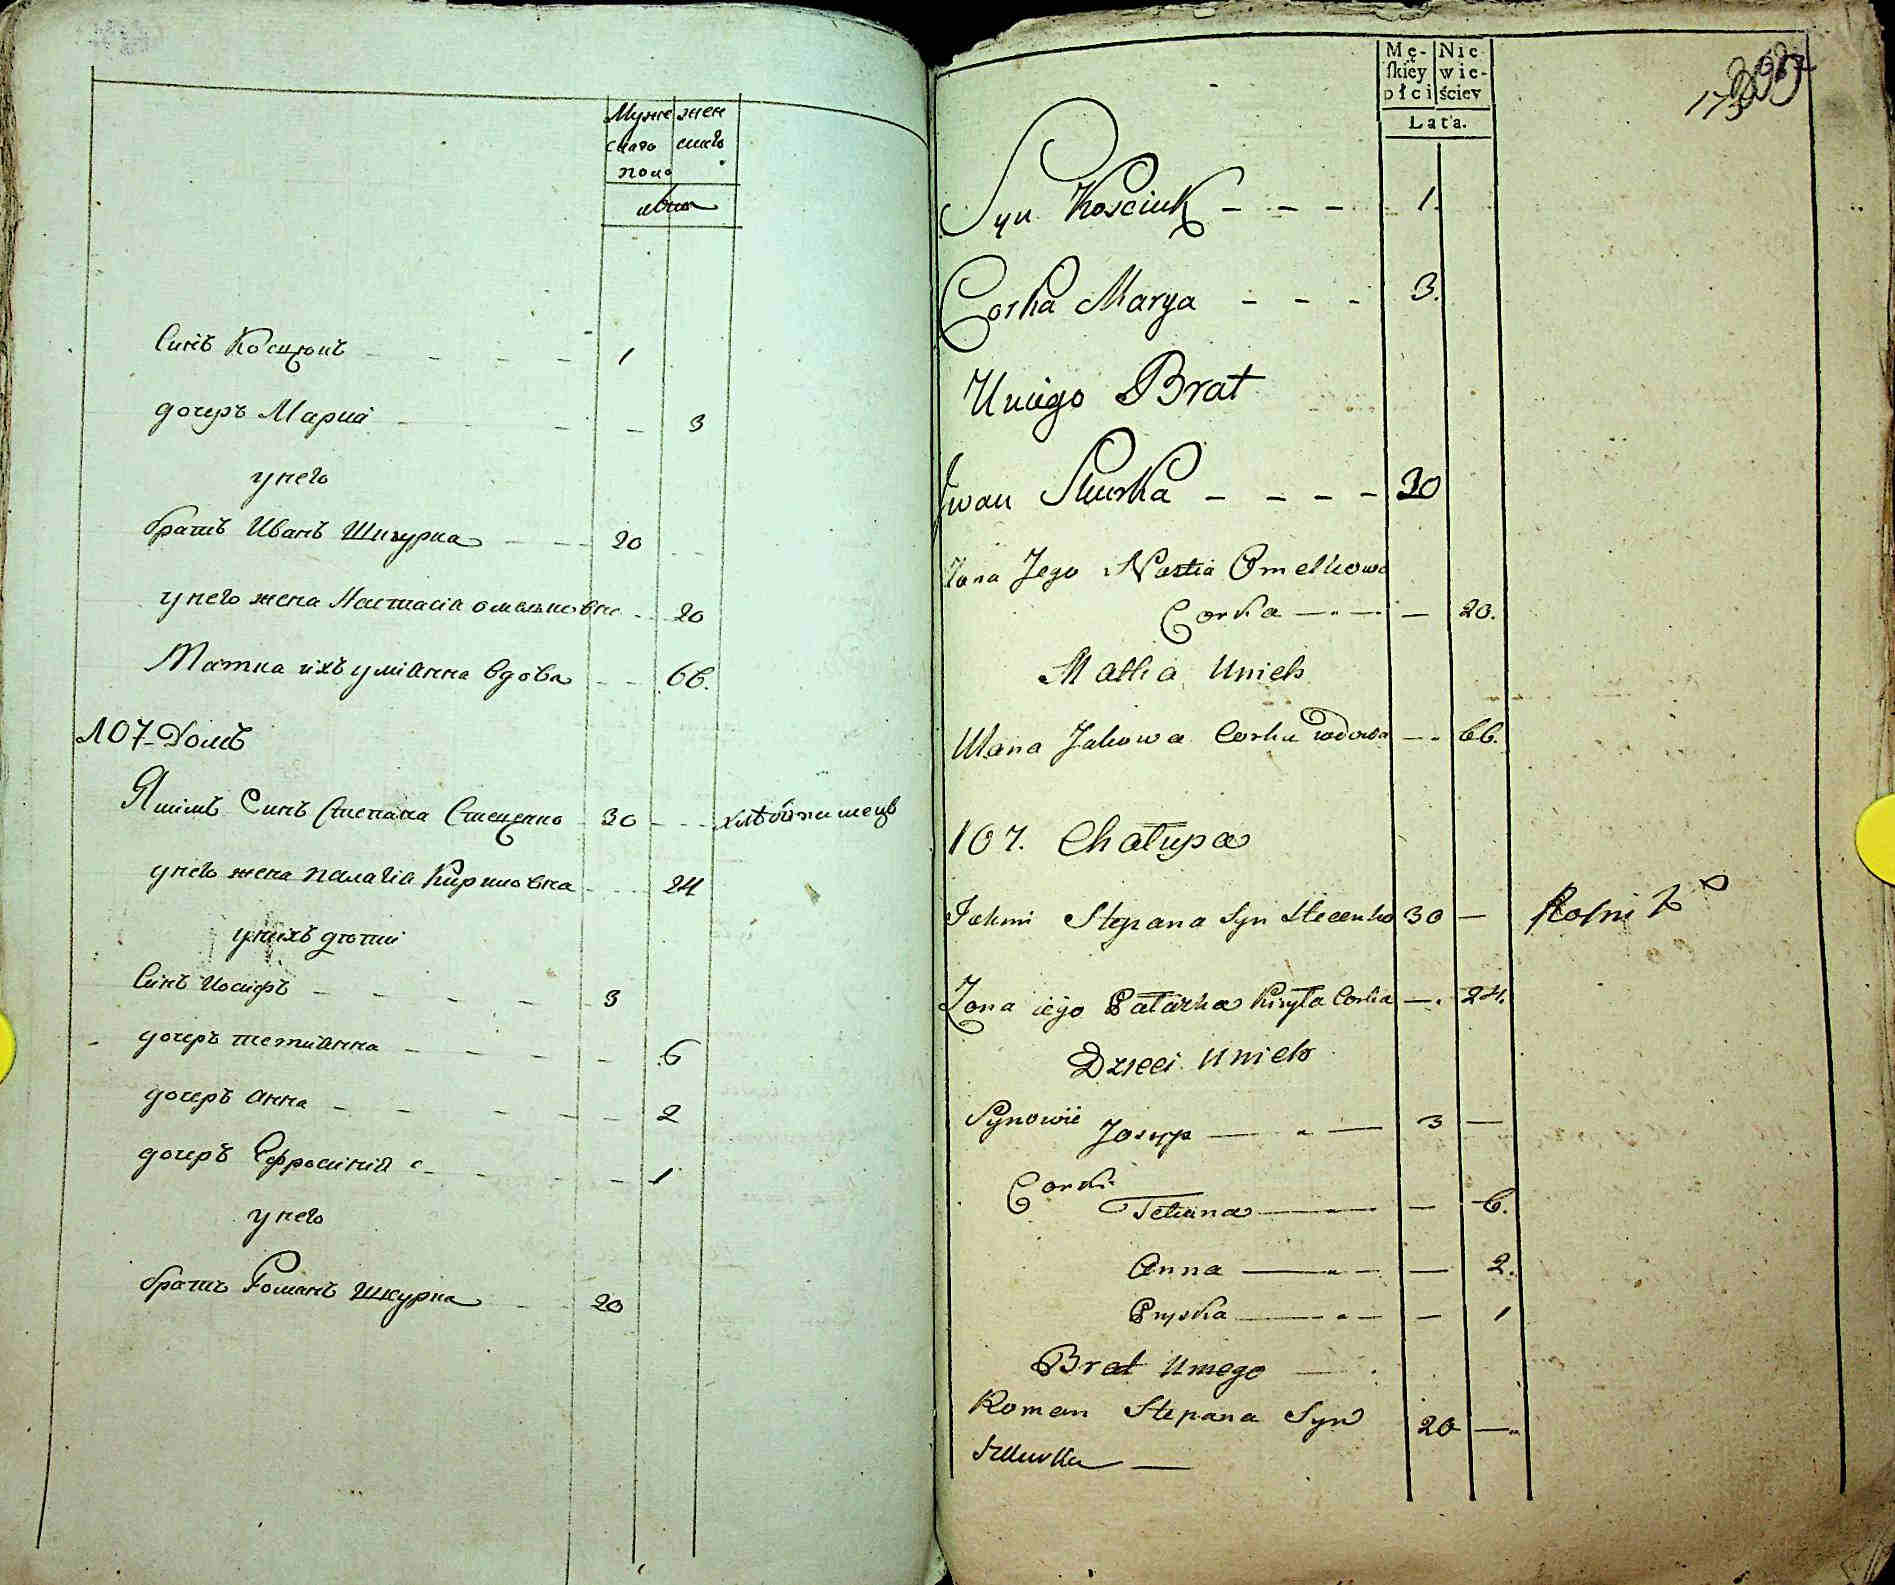 Муже жен
скаго скаго
пола
лѣта
Синъ Косцюкъ - - - - 1
дочеръ Мариа - - - - 3
у него
братъ Иванъ Шкурка - - - 20
у него жена Настасія омельковна - - 20
Матка ихъ уліянна вдова - - 66.
107 Домъ
Якимъ Синъ Степана Стеценко - 30 - - - хлѣбопашецъ
у него жена палагіа Кириловна - - - 24
у нихъ дѣтии
Синъ Иосифъ - - - - - 3
дочеръ тетиянна - - - - 6
дочеръ анна - - - - - 2
дочеръ Ефросиния - - - - 1
у него
братъ Романъ Шкурка - - 20
Mę- Nie
skiey wie-
płci ściey
Lata.
173
Syn Kosciuk - - - 1.
Corka Marya - - - 3.
Uniego Brat
Jwan Skurka - - - - 30
Zona Jego Nastia Omelkowa
Corka — - — - — 20.
Matka Unich
Ulana Jakowa Corka wdowa — - 66.
107. Chałupa
Jakim Stepana Syn Stecenko 30 — Rolnik
Zona iego Pałażka Kiryła Corka —. 24.
Dzieci Unich
Synowie Josyp — - — 3 —
Corki
Tetiana — - — — 6.
Anna — - — — 2.
Pryska — - — — 1
Brat Uniego —
Roman Stepana Syn 20 —
Szkurka —